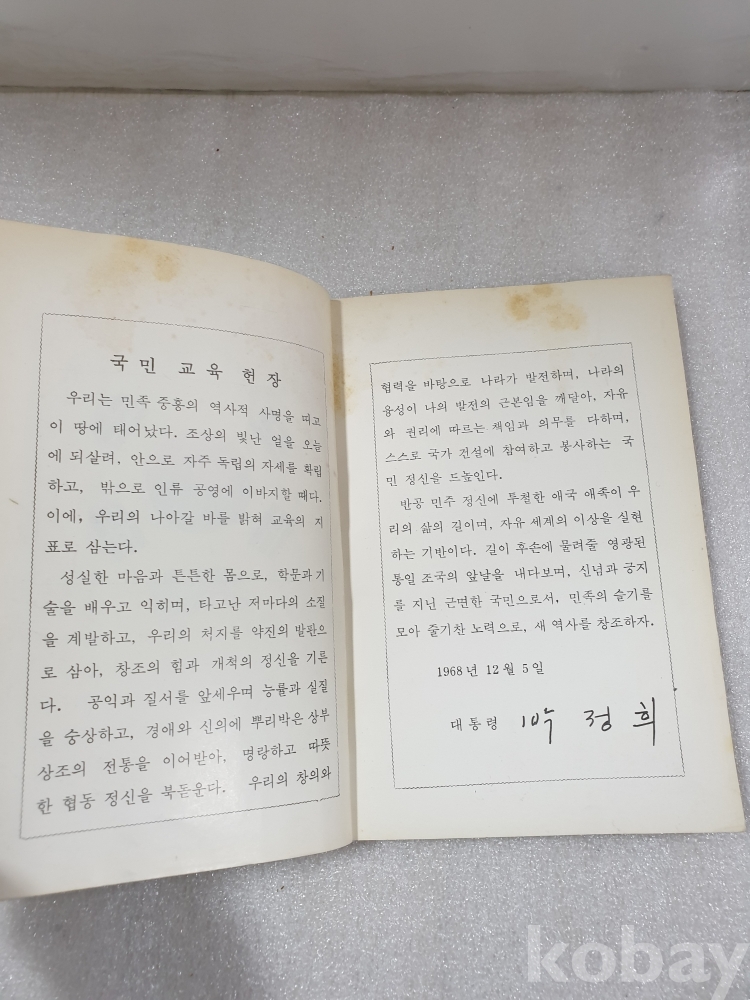 국민 교육 헌장
우리는 민족 중흥의 역사적 사명을 띠고
이 땅에 태어났다. 조상의 빛난 얼을 오늘
에 되살려, 안으로 자주 독립의 자세를 확립
하고, 밖으로 인류 공영에 이바지할 때다.
이에, 우리의 나아갈 바를 밝혀 교육의 지
표로 삼는다.
성실한 마음과 튼튼한 몸으로, 학문과 기
술을 배우고 익히며, 타고난 저마다의 소질
을 계발하고, 우리의 처지를 약진의 발판으
로 삼아, 창조의 힘과 개척의 정신을 기른
다. 공익과 질서를 앞세우며 능률과 실질
을 숭상하고, 경애와 신의에 뿌리박은 상부
상조의 전통을 이어받아, 명랑하고 따뜻
한 협동 정신을 북돋운다. 우리의 창의와
협력을 바탕으로 나라가 발전하며, 나라의
융성이 나의 발전의 근본임을 깨달아, 자유
와 권리에 따르는 책임과 의무를 다하며,
스스로 국가 건설에 참여하고 봉사하는 국
민 정신을 드높인다.
반공 민주 정신에 투철한 애국 애족이 우
리의 삶의 길이며, 자유 세계의 이상을 실현
하는 기반이다. 길이 후손에 물려줄 영광된
통일 조국의 앞날을 내다보며, 신념과 긍지
를 지닌 근면한 국민으로서, 민족의 슬기를
모아 줄기찬 노력으로, 새 역사를 창조하자.
1968년 12월 5일
대통령 박정희
kobay